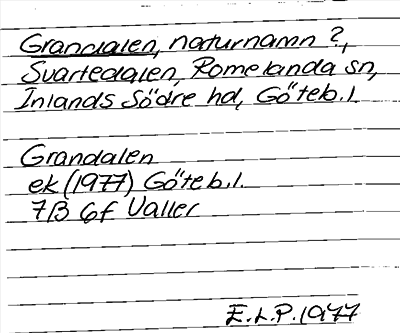 Grandalen, naturnamn?,
Svartedalen, Romelanda sn,
Inlands Södre hd, Göteb.l.
Grandalen
ek (1977) Göteb.l.
7B 6f Valler
E.L.P. 1977